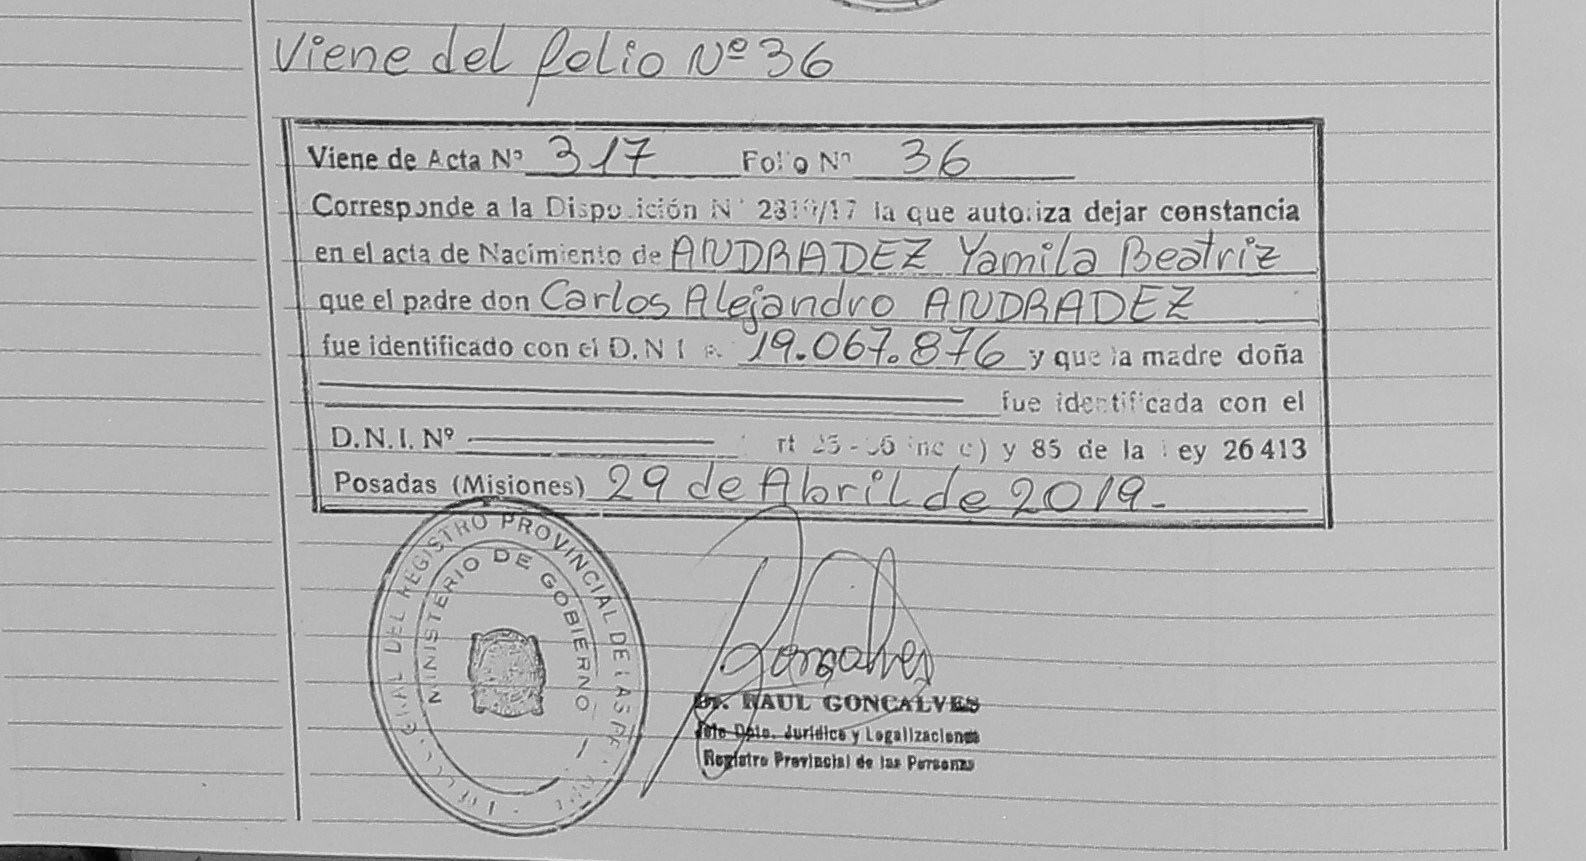 Viene del folio Nº 36
Viene de Acta Nº 317 Folio Nº 36
Corresponde a la Disposición Nº /17 la que autoriza dejar constancia
en el acta de Nacimiento de ANDRADEZ Yamila Beatriz
que el padre don Carlos Alejandro ANDRADEZ
fue identificado con el D.N.I. 19.067.876 y que la madre doña
fue identificada con el
D.N.I. Nº rt inc c) y 85 de la ley 26413
Posadas (Misiones) 29 de Abril de 2019.-
DEL REGISTRO PROVINCIAL DE LAS
MINISTERIO DE GOBIERNO
Goncalves
Dr. RAUL GONCALVES
Jefe Dpto. Jurídico y Legalizaciones
Registro Provincial de las Personas